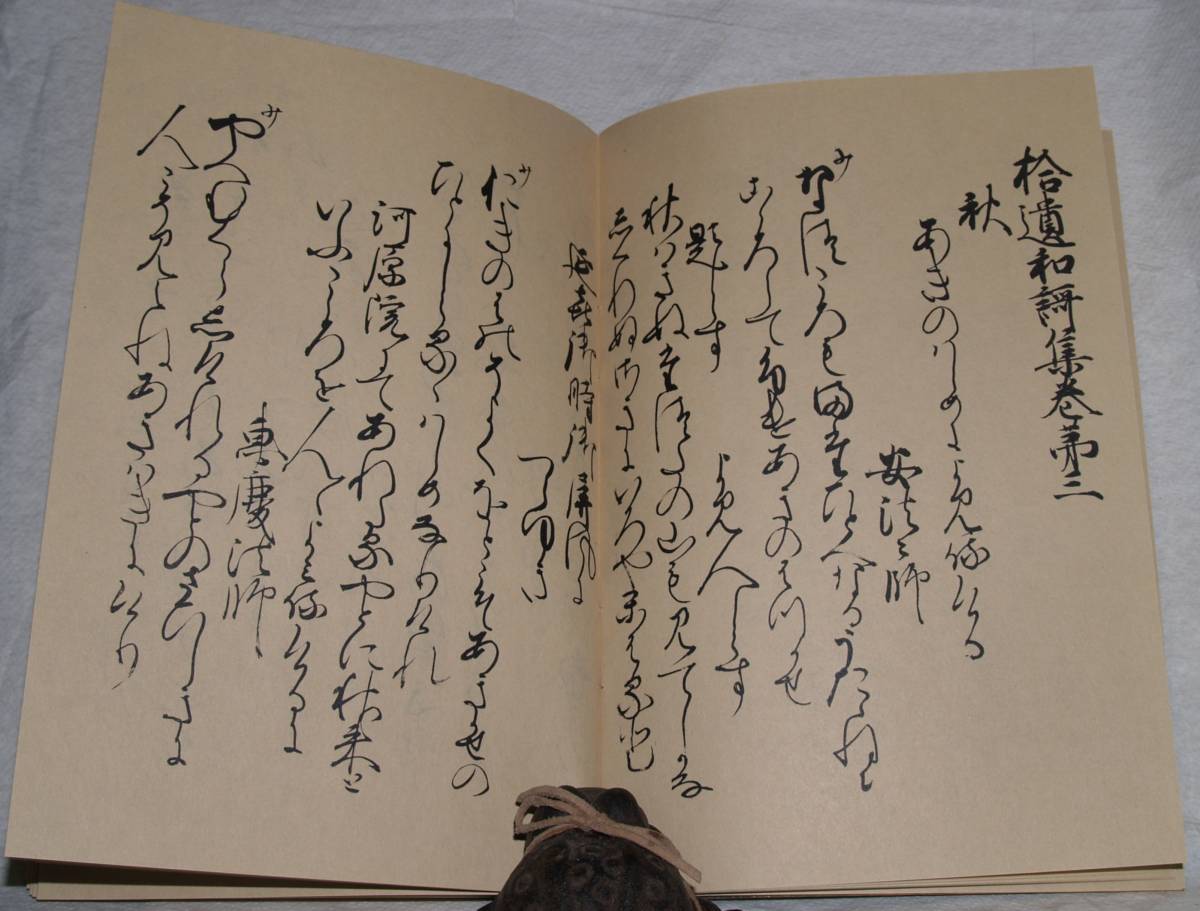 拾遺和謌集巻第三
秋
あきのはしめによみ侍ける
安法々師
なつころもまたひとへなるうたゝねに
こゝろしてふけあきのはつかせ
題しらす
よみ人しらす
秋はきぬたつたの山も見てしかな
しくれぬさきにいろやかはると
延喜御時御屏風に
つらゆき
おきのはのそよくおとこそあきかせの
ひとにしらるゝはしめなりけれ
河原院にてあれたるやとに秋来と
いふこゝろを人〱よみ侍けるに
恵慶法師
やへむくらしけれるやとのさひしきに
人こそ見えねあきはきにけり